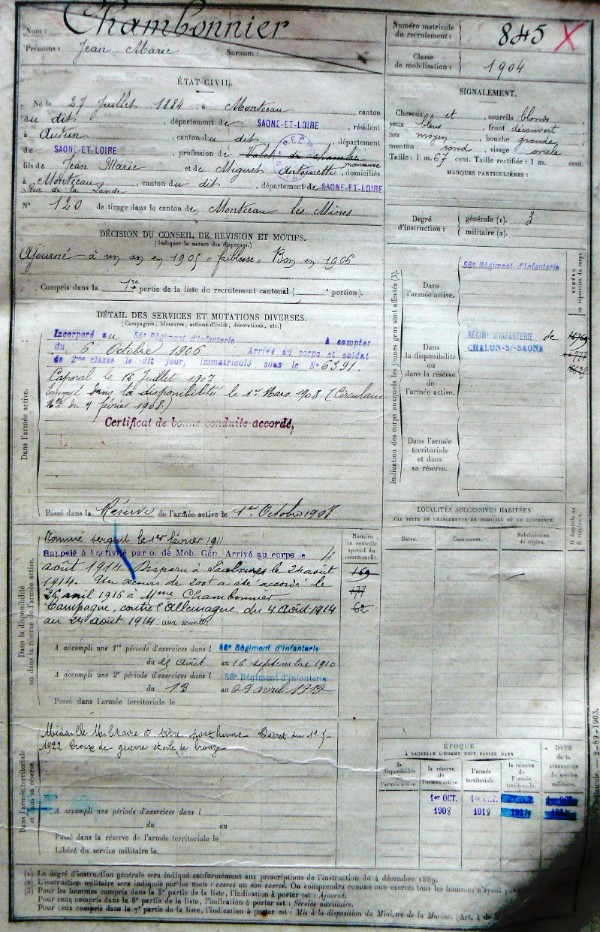 Nom : Chambonnier
Prénoms : Jean Marie Surnom :
Numéro matricule du recrutement : 845 X
Classe de mobilisation : 1904
ÉTAT CIVIL.
Né le 27 Juillet 1884, à Montceau canton
du dit, département de SAONE-ET-LOIRE, résident
à Autun canton du dit, département
de SAONE-ET-LOIRE, profession de Valet de chambre
fils de Jean Marie et de Miguet Antoinette domiciliés
à Montceau, canton du dit, département de SAONE-ET-LOIRE
N° 120 de tirage dans le canton de Montceau les Mines
SIGNALEMENT.
Cheveux et sourcils blonds
yeux bleus front découvert
nez moyen bouche grande
menton rond visage ovale
Taille : 1 m. 67 cent. Taille rectifiée : 1 m. cent.
MARQUES PARTICULIÈRES :
Degré d'instruction : générale (1). 3
militaire (2).
DÉCISION DU CONSEIL DE RÉVISION ET MOTIFS.
Ajourné à un an en 1905 "faiblesse" Bon en 1906
Compris dans la 1re partie de la liste du recrutement cantonal ( portion).
DÉTAIL DES SERVICES ET MUTATIONS DIVERSES.
(Campagnes, blessures, actions d'éclat, décorations, etc.)
Dans l'armée active.
Incorporé au 56e Régiment d'Infanterie A compter
du 6 Octobre 1906 Arrivé au corps et soldat
de 2me classe le dit jour, immatriculé sous le N° 6391.
Caporal le 12 Juillet 1907
dans la disponibilité le 1er Mars 1908 (Circulaire
du 4 février 1908)
Certificat de bonne conduite accordé,
Passé dans la Réserve de l'armée active le 1er Octobre 1908
Dans la disponibilité ou dans la réserve de l'armée active.
Nommé sergent le 1er février 1911
Rappelé à l'activité par o. de Mob. Gén. Arrivé au corps le 4
août 1914. Disparu à le 24 août
1914. Un secours de 200f a été accordé le
26 avril 1916 à Mme Chambonnier
Campagne contre l'Allemagne du 4 Août 1914
au 24 août 1914 aux armées
Numéro au contrôle spécial du recrutement.
169
177
62
A accompli une 1re période d'exercices dans l 56e Régiment d'Infanterie
du 25 Août au 16 septembre 1910
A accompli une 2e période d'exercices dans l 56e Régiment d'Infanterie
du 13 au 29 avril 1912
Passé dans l'armée territoriale le
Dans l'armée territoriale et dans sa réserve.
Médaille Militaire à titre posthume Décret du
1922 Croix de guerre étoile de bronze
A accompli une période d'exercices dans l
du au
Passé dans la réserve de l'armée territoriale le
Libéré du service militaire le
Indication des corps auxquels les jeunes gens sont affectés (3).
Dans l'armée active. 56e Régiment d'Infanterie
Dans la disponibilité ou dans la réserve de l'armée active.
RÉGIMt D'INFANTERIE de
CHALON-Sr-SAONE
Dans l'armée territoriale et dans sa réserve.
LOCALITÉS SUCCESSIVES HABITÉES
PAR SUITE DE CHANGEMENTS DE DOMICILE OU DE RÉSIDENCE.
Dates. Communes. Subdivisions de région.
ÉPOQUE
À LAQUELLE L'HOMME DOIT PASSER DANS
la disponibilité de l'armée active
la réserve de l'armée active
l'armée territoriale
la réserve de l'armée territoriale
DATE de la LIBÉRATION du service militaire.
1er OCT.
1908 1918
(1) Le degré d'instruction générale sera indiqué conformément aux prescriptions de l'instruction du 4 décembre 1889.
(2) L'instruction militaire sera indiquée par les mots : exercé ou non exercé. On comprendra comme non exercés tous les hommes n'ayant
(3) Pour les hommes compris dans la 5e partie de la liste, l'indication à porter est : Ajourné.
Pour ceux compris dans la 6e partie de la liste, l'indication à porter est : Service auxiliaire.
Pour ceux compris dans la 7e partie de la liste, l'indication à porter est : Mis à la disposition du Ministre de la Marine. [Art. 4 de